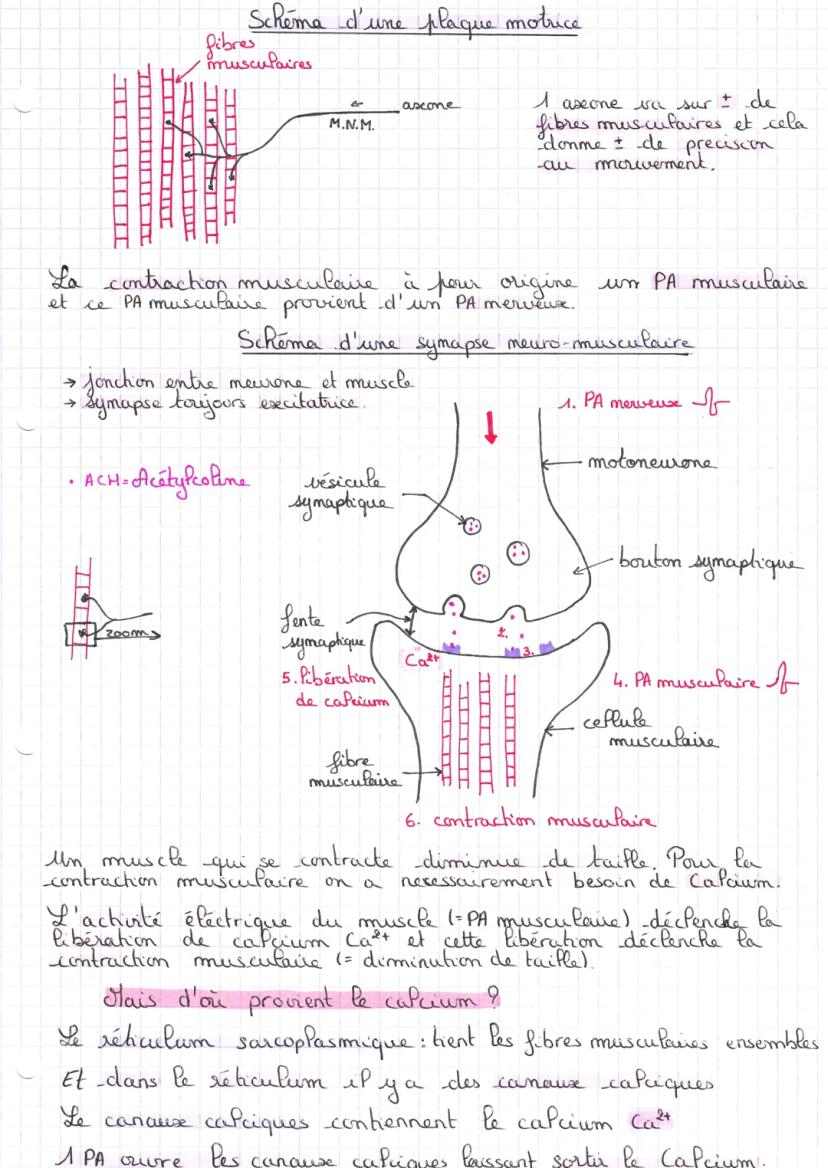 Schéma d'une plaque motrice
fibres
musculaires
← axone
M.N.M.
1 axone va sur ± de
fibres musculaires et cela
donne ± de precision
au mouvement.
La contraction musculaire à pour origine un PA musculaire
et ce PA musculaire provient d'un PA nerveux.
Schéma d'une synapse neuro-musculaire
→ jonction entre neurone et muscle
→ synapse toujours excitatrice.
1. PA nerveux
motoneurone
• ACH = Acétylcoline
vésicule
synaptique
bouton synaptique
zoom
fente
synaptique
2.
3.
Ca²⁺
5. libération
de calcium
4. PA musculaire
cellule
musculaire
fibre
musculaire
6. contraction musculaire
Un muscle qui se contracte diminue de taille. Pour la
contraction musculaire on a necessairement besoin de Calcium.
L'activité électrique du muscle (= PA musculaire) déclenche la
libération de calcium Ca²⁺ et cette libération déclenche la
contraction musculaire (= diminution de taille).
Mais d'où provient le calcium ?
Le réticulum sarcoplasmique : tient les fibres musculaires ensembles
Et dans le réticulum il y a des canaux calciques
Le canaux calciques contiennent le calcium Ca²⁺
1 PA ouvre les canaux calciques laissant sortir le Calcium.